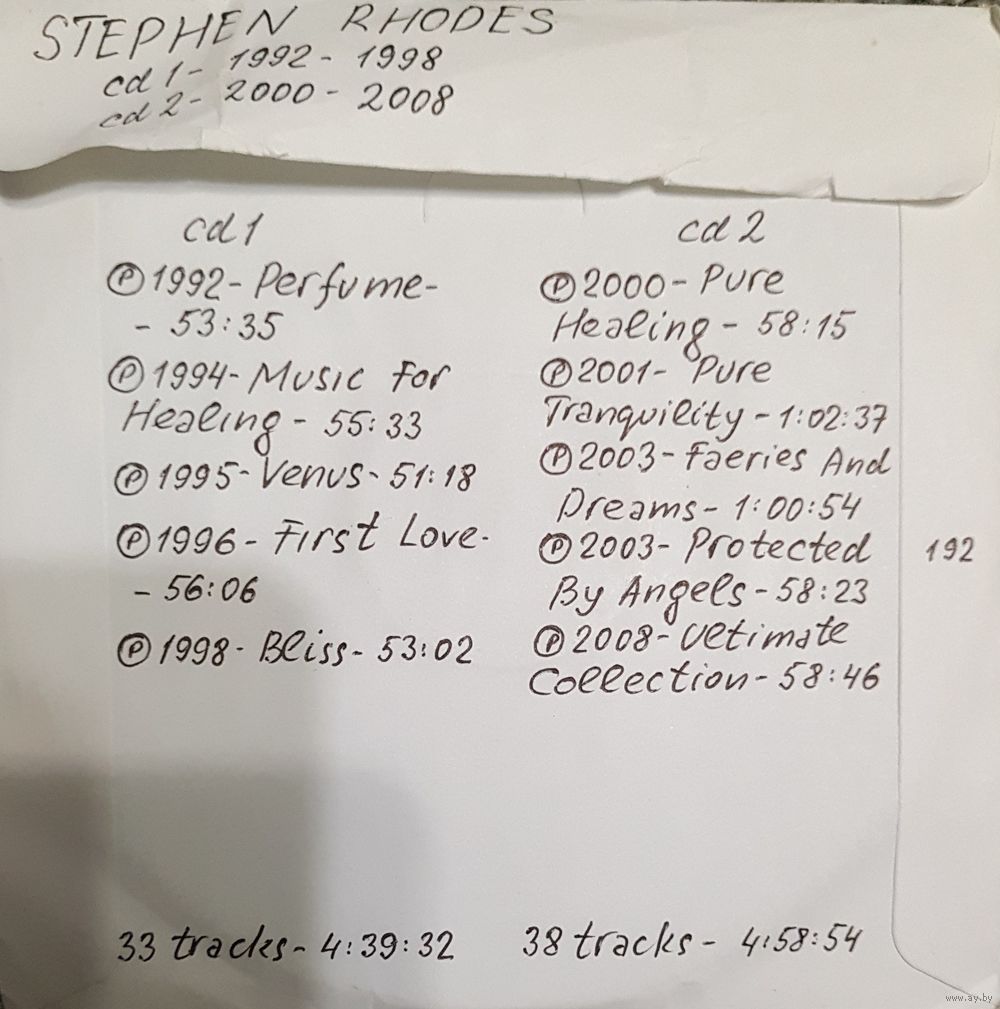 STEPHEN RHODES
cd 1 - 1992 - 1998
cd 2 - 2000 - 2008
cd 1
Ⓟ 1992 - Perfume -
- 53:35
Ⓟ 1994 - Music For
Healing - 55:33
Ⓟ 1995 - Venus - 51:18
Ⓟ 1996 - First Love -
- 56:06
Ⓟ 1998 - Bliss - 53:02
33 tracks - 4:39:32
cd 2
Ⓟ 2000 - Pure
Healing - 58:15
Ⓟ 2001 - Pure
Tranquility - 1:02:37
Ⓟ 2003 - Faeries And
Dreams - 1:00:54
Ⓟ 2003 - Protected
By Angels - 58:23
Ⓟ 2008 - Ultimate
Collection - 58:46
38 tracks - 4:58:54
192
www.ay.by